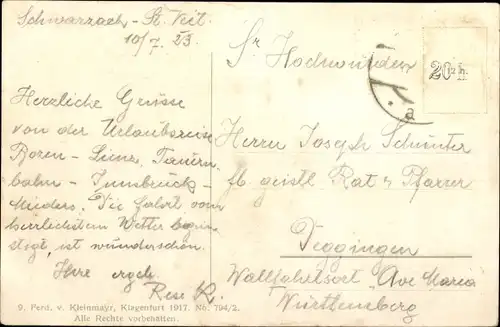 Schwarzach - St. Veit
10/7. 23.
Herzliche Grüsse
von der Urlaubsreise
Bozen - Lienz, Tauern-
bahn - Innsbruck -
Mieders. Die Fahrt vom
herrlichsten Wetter begün-
stigt, ist wunderschön.
Ihre ergeb.
Rese K.
Sr Hochwürden
Herrn Joseph
fb. geistl. Rat & Pfarrer
Deggingen
Wallfahrtsort "Ave Maria
Württemberg
20 h
a
9. Ferd. v. Kleinmayr, Klagenfurt 1917. No. 794/2.
Alle Rechte vorbehalten.